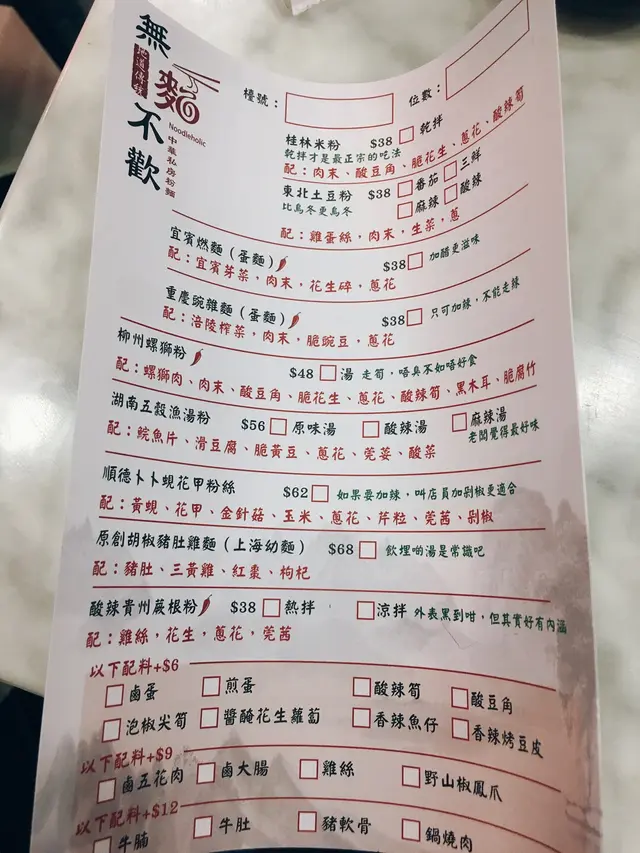 無麵不歡
地道傳統
Noodleholic
中華私房粉麵
檯號：
位數：
桂林米粉 $38 乾拌
乾拌才是最正宗的吃法
配：肉末、酸豆角、脆花生、蔥花、酸辣筍
東北土豆粉 $38 番茄 三鮮
比烏冬更烏冬 麻辣 酸辣
配：雞蛋絲，肉末，生菜，蔥
宜賓燃麵（蛋麵） $38 加醋更滋味
配：宜賓芽菜，肉末，花生碎，蔥花
重慶豌雜麵（蛋麵） $38 只可加辣，不能走辣
配：涪陵榨菜，肉末，脆豌豆，蔥花
柳州螺獅粉 $48 湯 走筍，唔臭不如唔好食
配：螺獅肉、肉末、酸豆角、脆花生、蔥花、酸辣筍、黑木耳、脆腐竹
湖南五穀漁湯粉 $56 原味湯 酸辣湯 麻辣湯
老闆覺得最好味
配：鯇魚片、滑豆腐、脆黃豆、蔥花、莞荽、酸菜
順德卜卜蜆花甲粉絲 $62 如果要加辣，叫店員加剁椒更適合
配：黃蜆、花甲、金針菇、玉米、蔥花、芹粒、莞茜、剁椒
原創胡椒豬肚雞麵（上海幼麵） $68 飲埋啲湯是常識吧
配：豬肚、三黃雞、紅棗、枸杞
酸辣貴州蕨根粉 $38 熱拌 涼拌 外表黑到咁，但其實好有內涵
配：雞絲，花生，蔥花，莞茜
以下配料+$6
鹵蛋 煎蛋 酸辣筍 酸豆角
泡椒尖筍 醬醃花生蘿蔔 香辣魚仔 香辣烤豆皮
以下配料+$9
鹵五花肉 鹵大腸 雞絲 野山椒鳳爪
以下配料+$12
牛腩 牛肚 豬軟骨 鍋燒肉